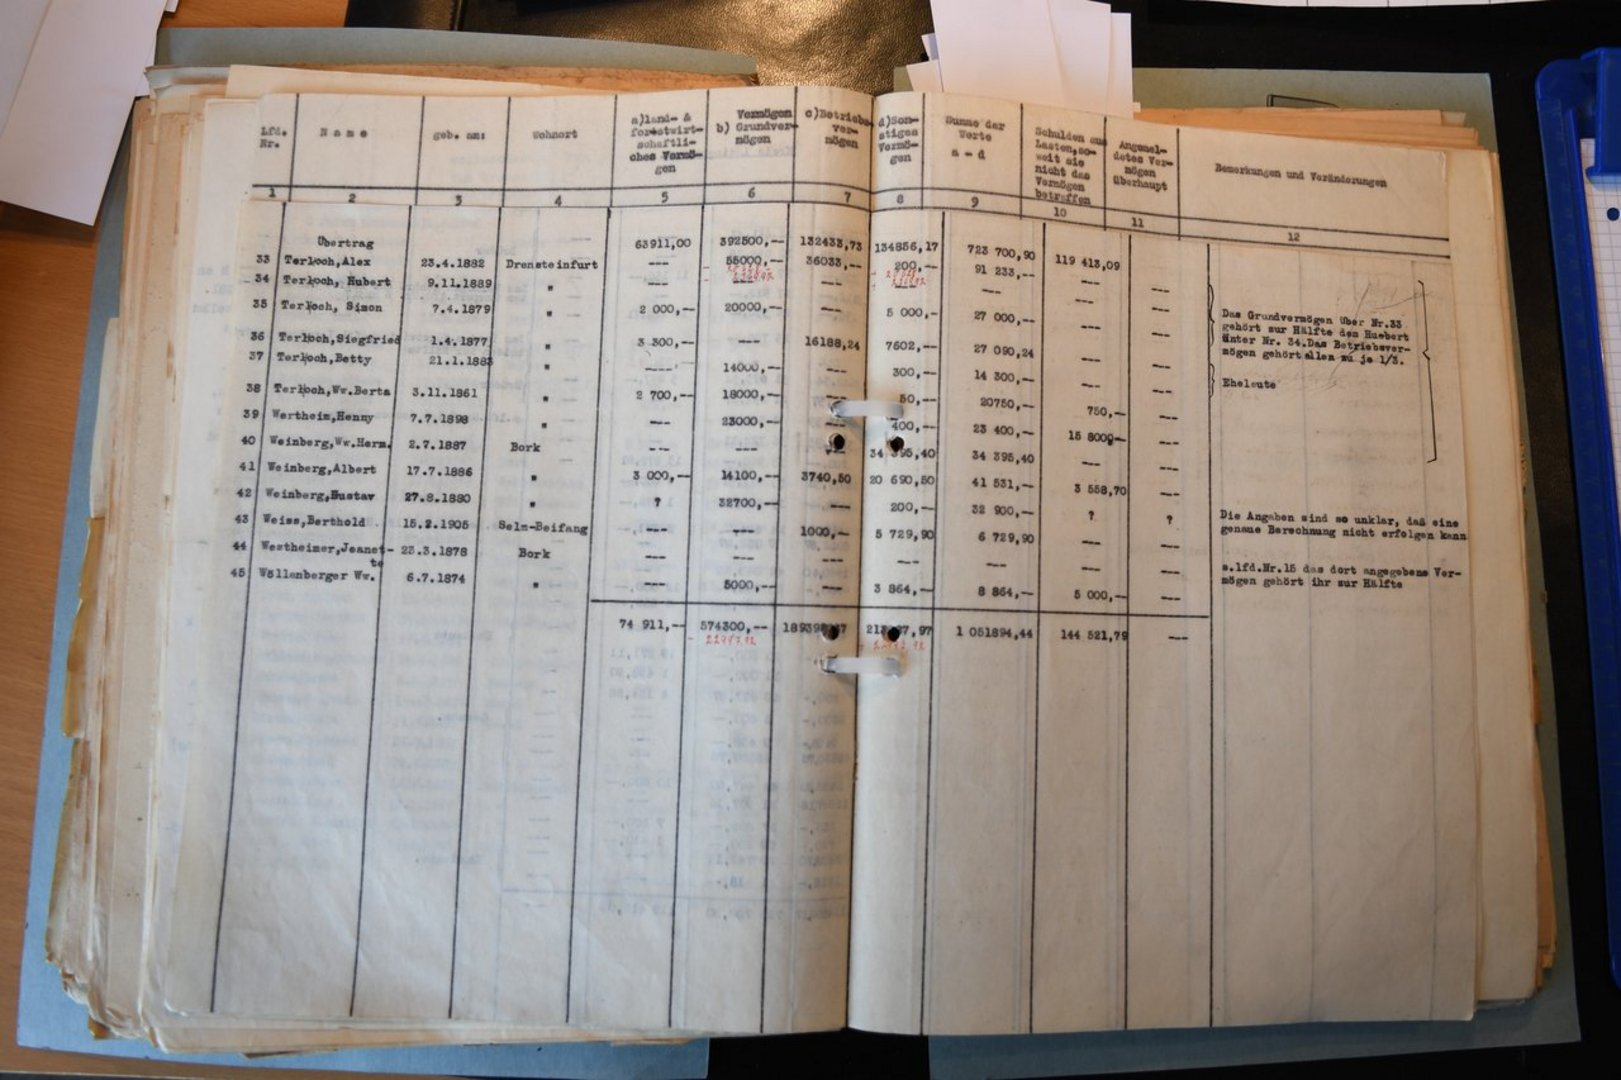 Lfd. Nr. | Name | geb. am: | Wohnort | a)land- & forstwirt- schaftli- ches Vermö- gen | Vermögen b) Grundver- mögen | c)Betriebs- ver- mögen | d)Son- stiges Vermö- gen | Summe der Werte a - d | Schulden aus Lasten,so- weit sie nicht das Vermögen betreffen | Angemel- detes Ver- mögen überhaupt | Bemerkungen und Veränderungen
1 2 3 4 5 6 7 8 9 10 11 12
Übertrag 63911,00 392500,-- 132433,73 134856,17 723 700,90 119 413,09
33 Terloch,Alex 23.4.1882 Drensteinfurt --- 55000,-- 36033,-- 200,-- 91 233,-- --- ---
34 Terloch, Hubert 9.11.1889 " --- --- --- --- --- ---
35 Terloch, Simon 7.4.1879 " 2 000,-- 20000,-- --- 5 000,- 27 000,-- --- ---
36 Terloch,Siegfried 1.4.1877 " 3 300,-- --- 16188,24 7602,-- 27 090,24 --- ---
37 Terloch,Betty 21.1.1883 " ---- 14000,-- --- 300,-- 14 300,-- --- ---
38 Terloch,Ww.Berta 3.11.1861 " 2 700,-- 18000,-- --- 50,-- 20750,-- 750,-- ---
39 Wertheim,Henny 7.7.1898 " --- 23000,-- --- 400,-- 23 400,-- 15 8000-- ---
40 Weinberg,Ww.Herm. 2.7.1887 Bork --- --- --- 34 395,40 34 395,40 --- ---
41 Weinberg,Albert 17.7.1886 " 3 000,-- 14100,-- 3740,50 20 690,50 41 531,-- 3 558,70 ---
42 Weinberg,Gustav 27.8.1880 " ? 32700,-- --- 200,-- 32 900,-- ? ?
43 Weiss,Berthold 15.2.1905 Selm-Beifang --- --- 1000,-- 5 729,90 6 729,90 --- ---
44 Westheimer,Jeanet- te 23.3.1878 Bork --- --- --- --- --- --- ---
45 Wöllenberger Ww. 6.7.1874 " --- 5000,-- --- 3 864,-- 8 864,-- 5 000,-- ---
74 911,-- 574300,-- 1 051894,44 144 521,79 ---
Das Grundvermögen über Nr.33
gehört zur Hälfte dem Huebert
unter Nr. 34.Das Betriebsver-
mögen gehört allen zu je 1/3.
Eheleute
Die Angaben sind so unklar, daß eine
genaue Berechnung nicht erfolgen kann
s.lfd.Nr.15 das dort angegebene Ver-
mögen gehört ihr zur Hälfte